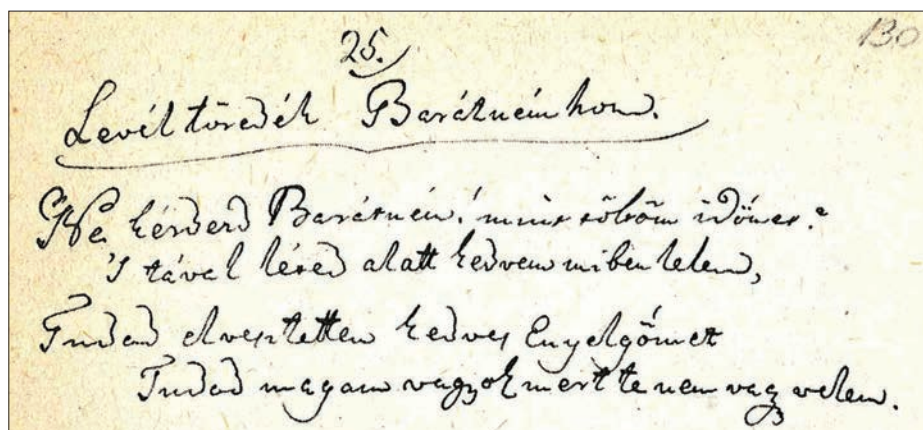 25.
130
Levél töredék Barátnémhoz.
Ne kérdezd Barátném! mint töltöm időmet?
's távol léted alatt kedvem miben lelem,
Tudod elvesztettem kedves Enyelgőmet
Tudod magam vagyok mert te nem vagy velem.